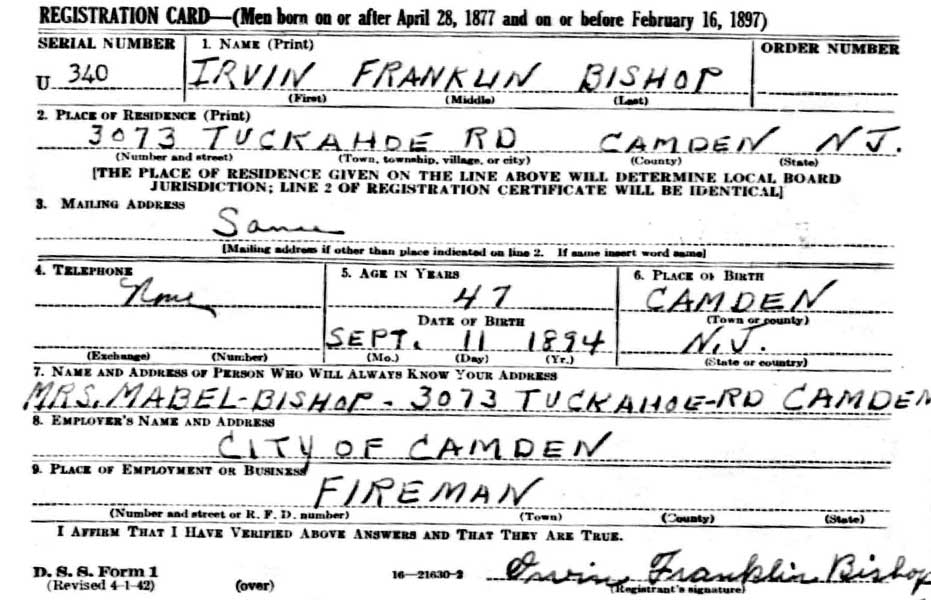 REGISTRATION CARD—(Men born on or after April 28, 1877 and on or before February 16, 1897)
SERIAL NUMBER 1. NAME (Print) ORDER NUMBER
U 340 IRVIN FRANKLIN BISHOP
(First) (Middle) (Last)
2. PLACE OF RESIDENCE (Print)
3073 TUCKAHOE RD CAMDEN N.J.
(Number and street) (Town, township, village, or city) (County) (State)
[THE PLACE OF RESIDENCE GIVEN ON THE LINE ABOVE WILL DETERMINE LOCAL BOARD
JURISDICTION; LINE 2 OF REGISTRATION CERTIFICATE WILL BE IDENTICAL]
3. MAILING ADDRESS
Same
[Mailing address if other than place indicated on line 2. If same insert word same]
4. TELEPHONE 5. AGE IN YEARS 6. PLACE OF BIRTH
None 47 CAMDEN
DATE OF BIRTH (Town or county)
SEPT. 11 1894 N.J.
(Exchange) (Number) (Mo.) (Day) (Yr.) (State or country)
7. NAME AND ADDRESS OF PERSON WHO WILL ALWAYS KNOW YOUR ADDRESS
MRS. MABEL-BISHOP - 3073 TUCKAHOE-RD CAMDEN
8. EMPLOYER'S NAME AND ADDRESS
CITY OF CAMDEN
9. PLACE OF EMPLOYMENT OR BUSINESS
FIREMAN
(Number and street or R. F. D. number) (Town) (County) (State)
I AFFIRM THAT I HAVE VERIFIED ABOVE ANSWERS AND THAT THEY ARE TRUE.
D. S. S. Form 1
(Revised 4-1-42) (over) 16—21630-2 Irvin Franklin Bishop
(Registrant's signature)